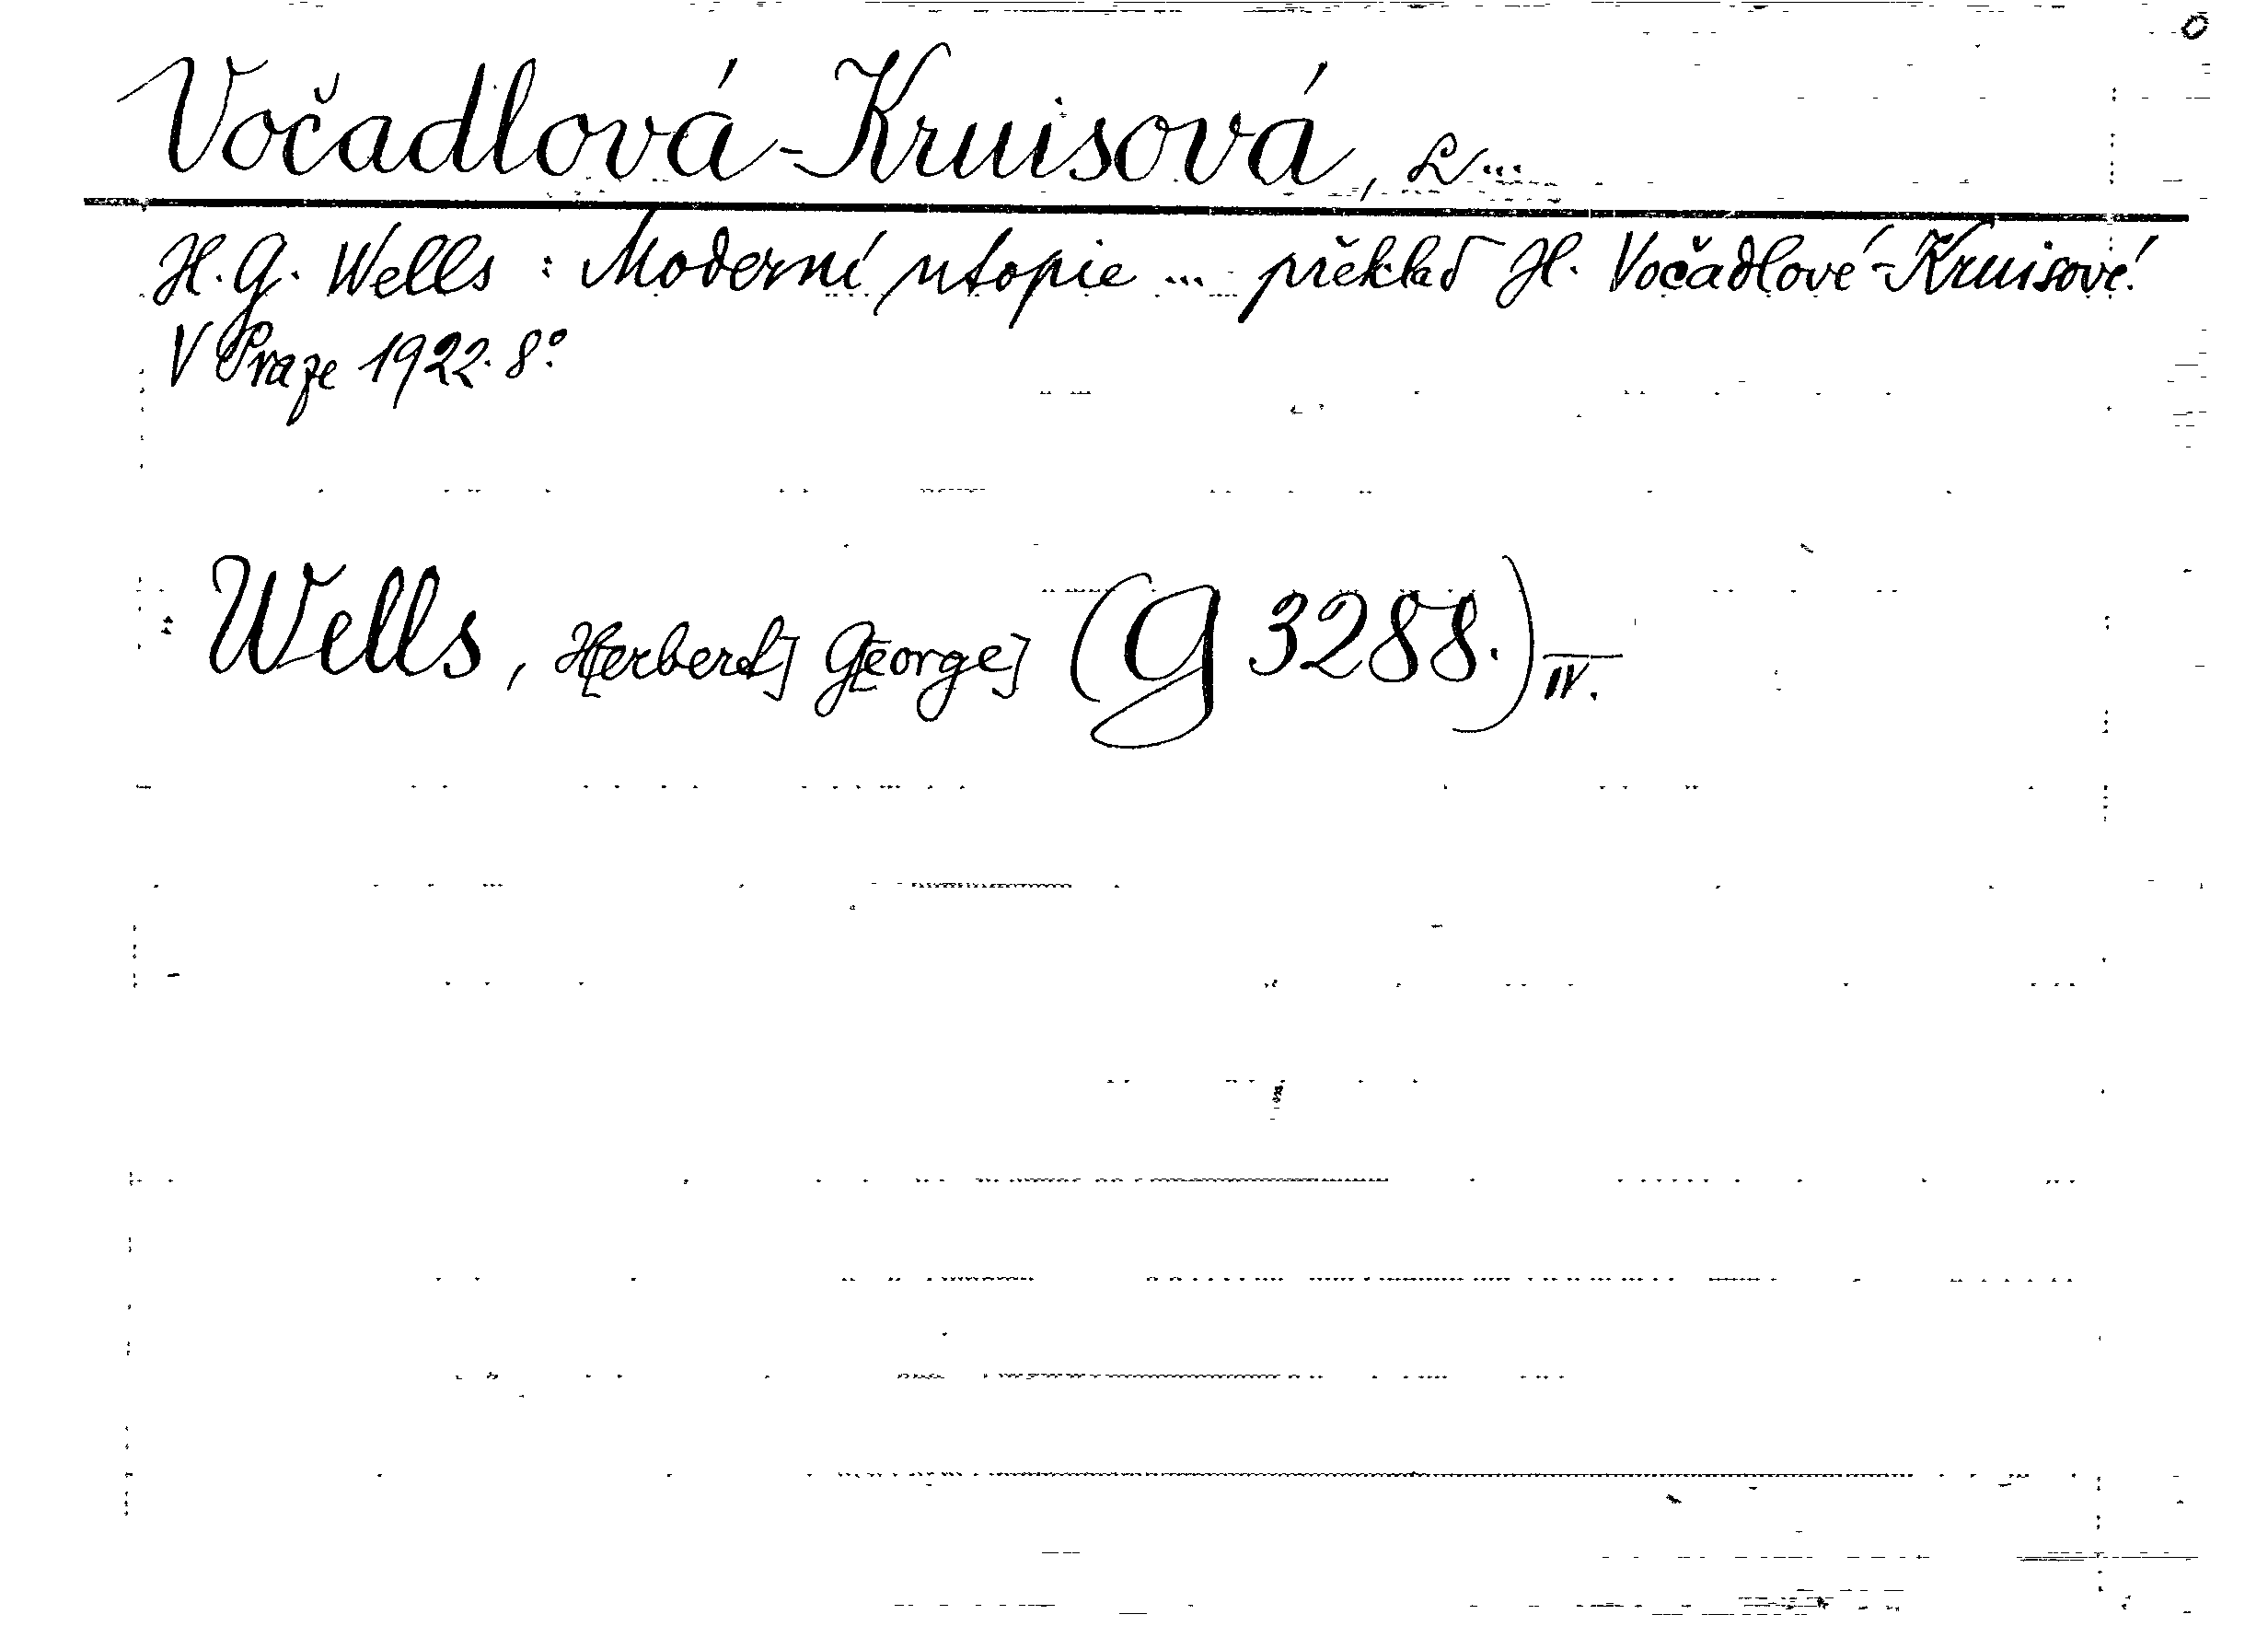 Vočadlová-Kruisová, L...
H. G. Wells : Moderní utopie ... překlad H. Vočadlové-Kruisové.
V Praze 1922. 8°.
: Wells, H[erbert] G[eorge] (G 3288.) IV.